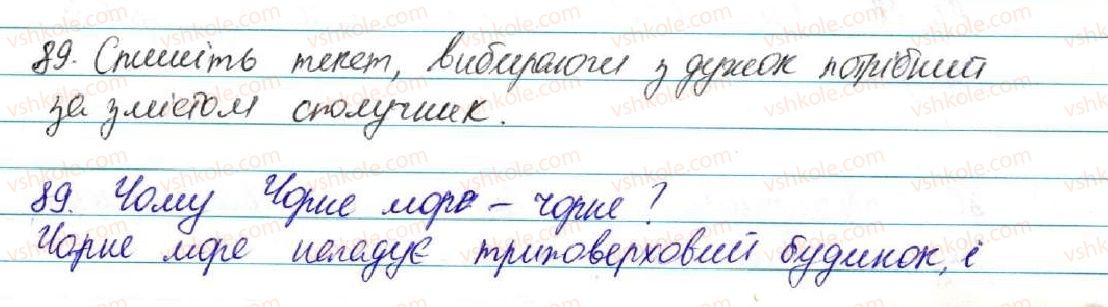 89. Спишіть текст, вибираючи з дужок потрібний
за змістом сполучник.
89. Чому Чорне море – чорне?
Чорне море нагадує триповерховий будинок, і